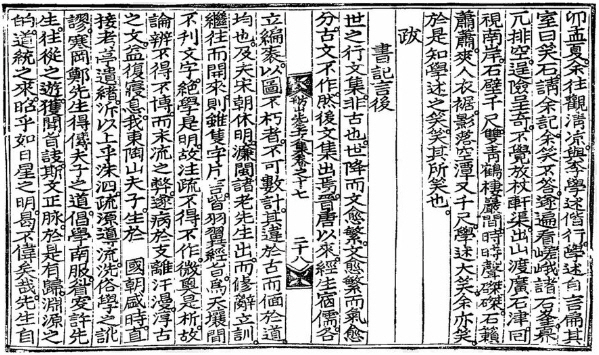 卯孟夏余往觀淸凉與李學述偕行學述自言扁其
室曰笑石請余記余笑不答遂遍看嵯峨諸石峯
兀排空逞險呈奇不覺放杖軒渠出山渡廣石津回
視南岸石壁千尺雙靑鶴棲巖間時時聲磔磔石籟
蕭蕭爽人衣裾影蘸空潭又千尺學述大笑余亦笑
於是知學述之笑笑其所笑也
跋
書記言後
世之行文集非古也世降而文愈繁文愈繁而氣愈
分古文不作然後文集出焉晉唐以來經生宿儒各
先生文集卷之十七 二十八
立編袠以圖不朽者不可數計其違於古而偭於道
均也及夫宋朝休明濂閩諸老先生出而修辭立訓
繼往而開來則雖隻字片言皆羽翼經旨爲天壤間
不刊文字絶學是明故注疏不得不作微奧是析故
論辨不得不博而末流之弊遂病於支離汗漫淳古
之文益復寢息我東陶山夫子生於 國朝咸時直
接考亭遺緖泝以上乎洙泗疏源導流洗俗學之訛
謬寒岡鄭先生得傳夫子之道倡學南服安許先
生往從之遊獲聞旨訣斯文正脉於是有歸淵源之
的道統之來昭乎如日星之明曷不偉矣哉先生自